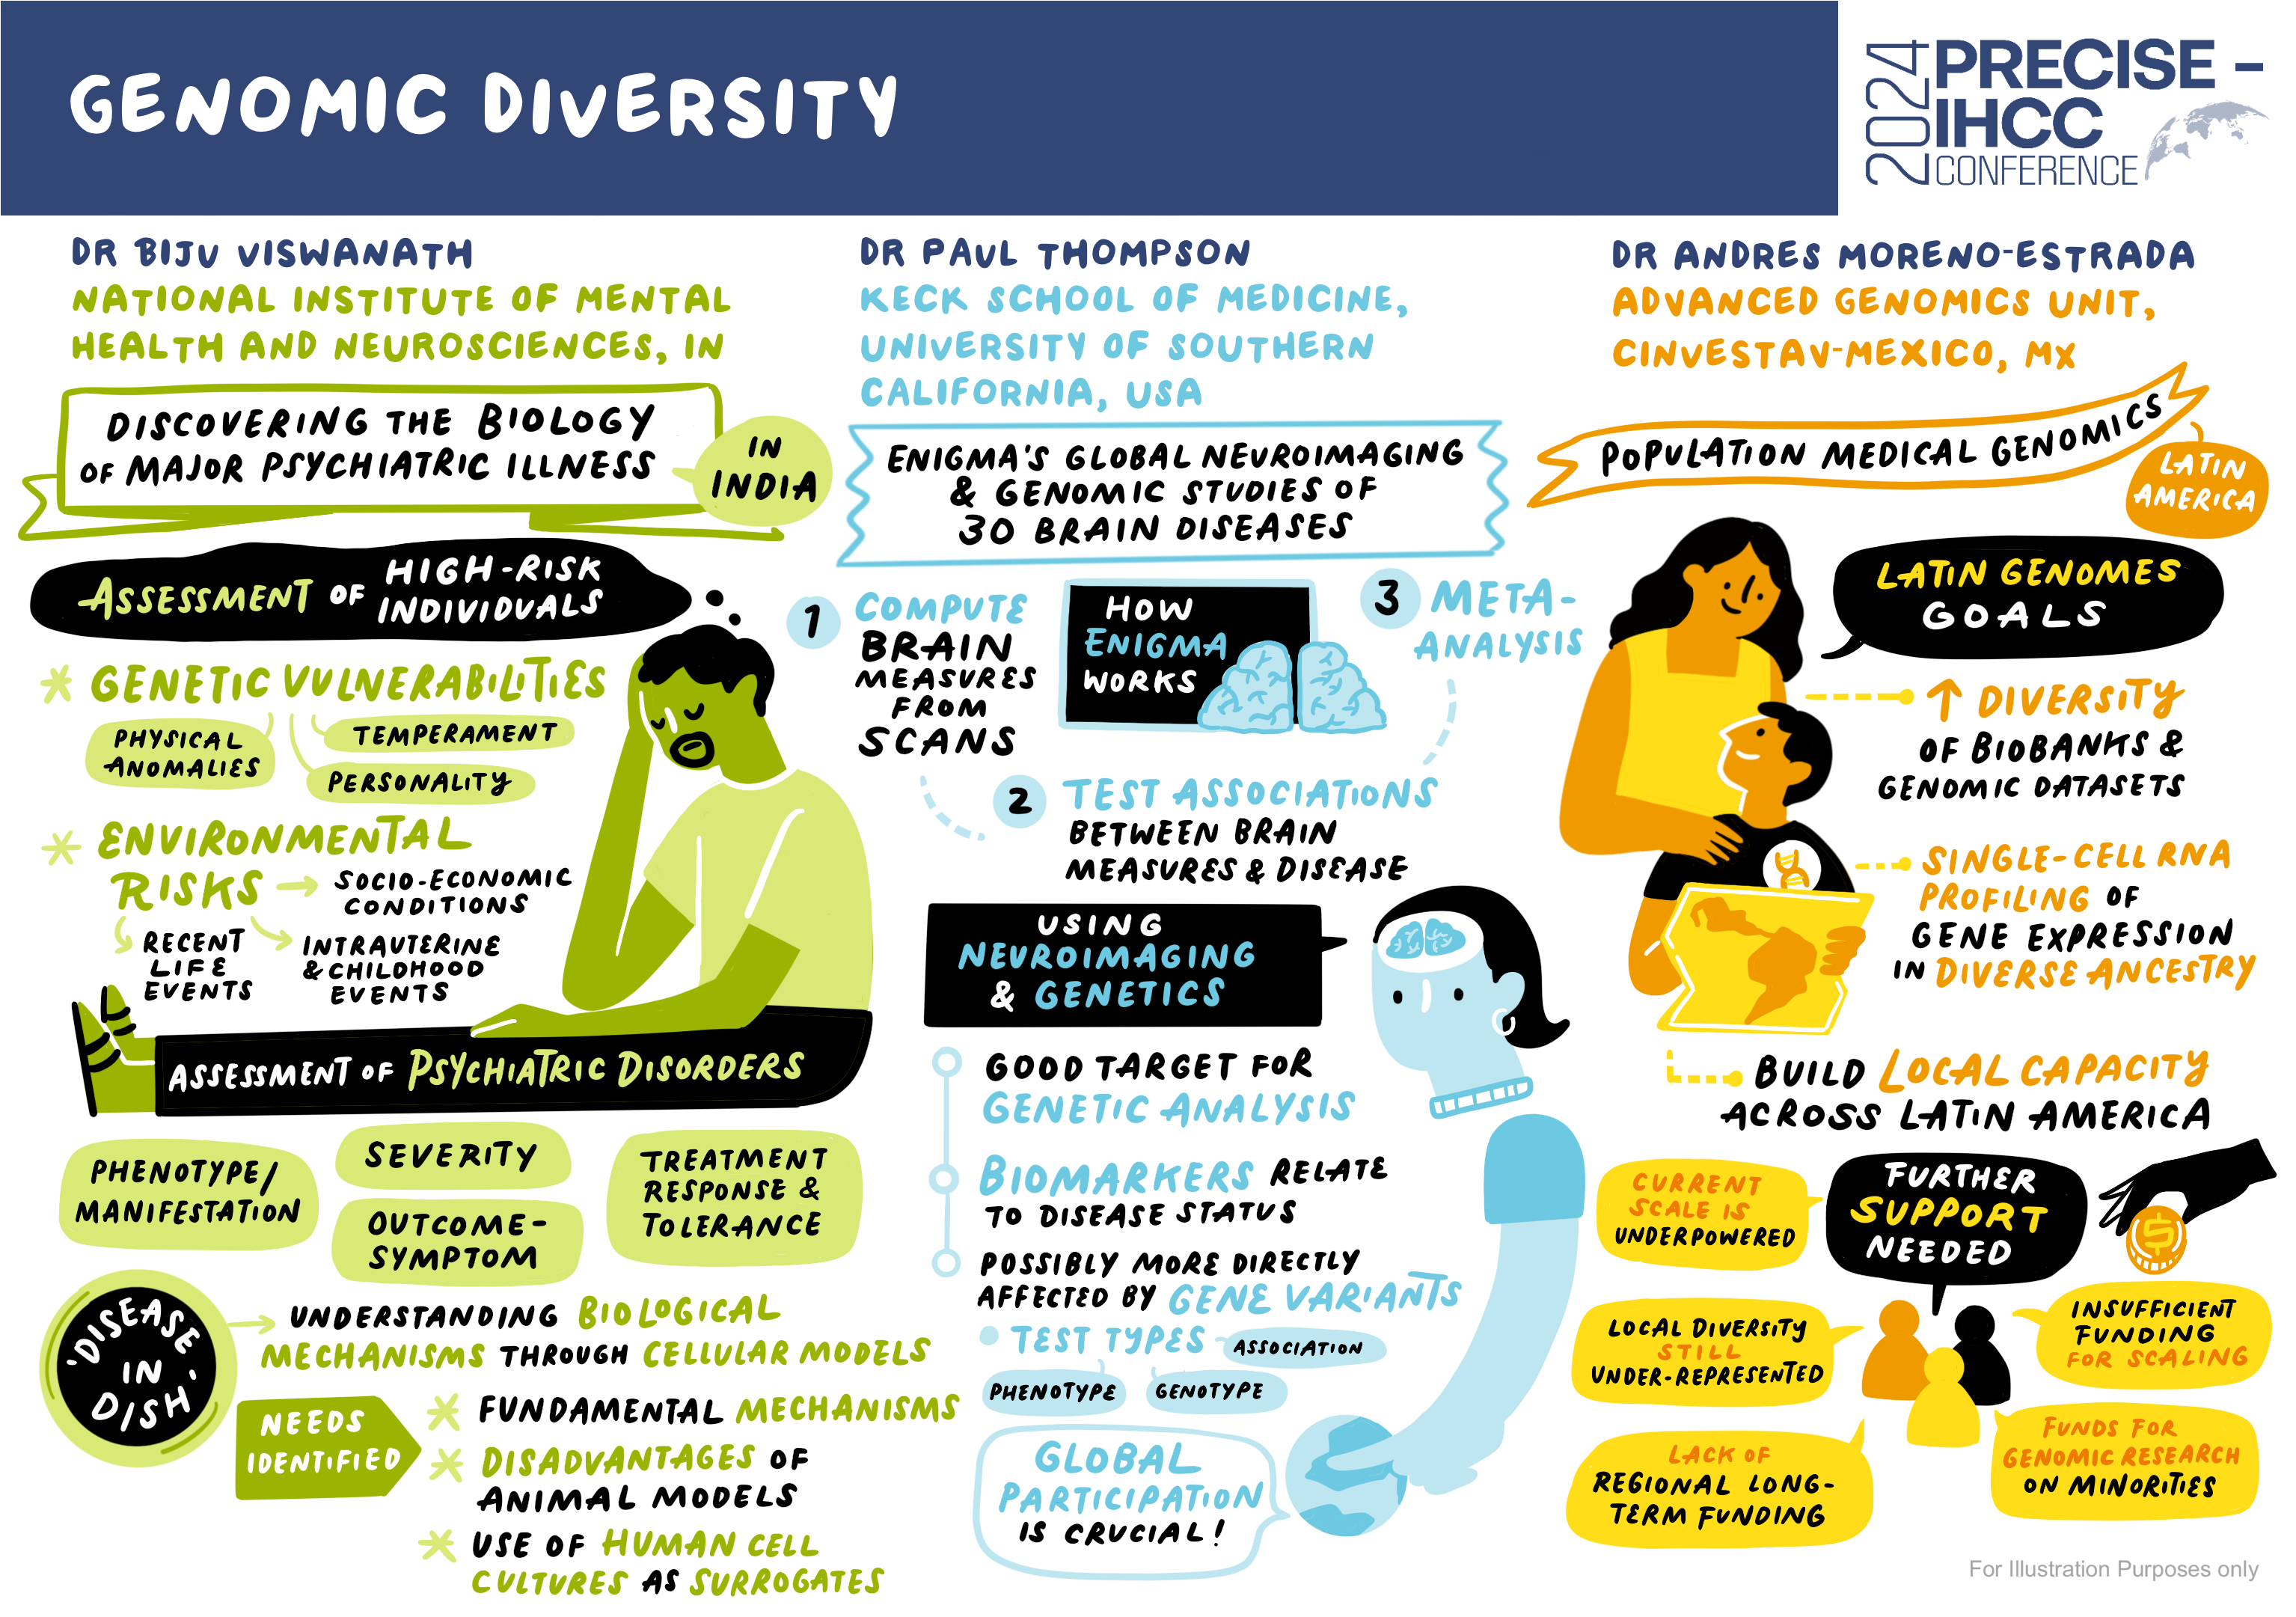 GENOMIC DIVERSITY
2024
PRECISE –
IHCC
CONFERENCE
DR BIJU VISWANATH
NATIONAL INSTITUTE OF MENTAL
HEALTH AND NEUROSCIENCES, IN
DISCOVERING THE BIOLOGY
OF MAJOR PSYCHIATRIC ILLNESS
IN
INDIA
ASSESSMENT OF HIGH-RISK
INDIVIDUALS
GENETIC VULNERABILITIES
PHYSICAL
ANOMALIES
TEMPERAMENT
PERSONALITY
ENVIRONMENTAL
RISKS
SOCIO-ECONOMIC
CONDITIONS
RECENT
LIFE
EVENTS
INTRAUTERINE
& CHILDHOOD
EVENTS
ASSESSMENT OF PSYCHIATRIC DISORDERS
PHENOTYPE/
MANIFESTATION
SEVERITY
OUTCOME-
SYMPTOM
TREATMENT
RESPONSE &
TOLERANCE
'DISEASE
IN
DISH'
UNDERSTANDING BIOLOGICAL
MECHANISMS THROUGH CELLULAR MODELS
NEEDS
IDENTIFIED
FUNDAMENTAL MECHANISMS
DISADVANTAGES OF
ANIMAL MODELS
USE OF HUMAN CELL
CULTURES AS SURROGATES
DR PAUL THOMPSON
KECK SCHOOL OF MEDICINE,
UNIVERSITY OF SOUTHERN
CALIFORNIA, USA
ENIGMA'S GLOBAL NEUROIMAGING
& GENOMIC STUDIES OF
30 BRAIN DISEASES
HOW
ENIGMA
WORKS
1 COMPUTE
BRAIN
MEASURES
FROM
SCANS
2 TEST ASSOCIATIONS
BETWEEN BRAIN
MEASURES & DISEASE
3 META-
ANALYSIS
USING
NEUROIMAGING
& GENETICS
GOOD TARGET FOR
GENETIC ANALYSIS
BIOMARKERS RELATE
TO DISEASE STATUS
POSSIBLY MORE DIRECTLY
AFFECTED BY GENE VARIANTS
TEST TYPES
ASSOCIATION
PHENOTYPE
GENOTYPE
GLOBAL
PARTICIPATION
IS CRUCIAL!
DR ANDRES MORENO-ESTRADA
ADVANCED GENOMICS UNIT,
CINVESTAV-MEXICO, MX
POPULATION MEDICAL GENOMICS
LATIN
AMERICA
LATIN GENOMES
GOALS
↑ DIVERSITY
OF BIOBANKS &
GENOMIC DATASETS
SINGLE-CELL RNA
PROFILING OF
GENE EXPRESSION
IN DIVERSE ANCESTRY
BUILD LOCAL CAPACITY
ACROSS LATIN AMERICA
FURTHER
SUPPORT
NEEDED
$
CURRENT
SCALE IS
UNDERPOWERED
LOCAL DIVERSITY
STILL
UNDER-REPRESENTED
LACK OF
REGIONAL LONG-
TERM FUNDING
INSUFFICIENT
FUNDING
FOR SCALING
FUNDS FOR
GENOMIC RESEARCH
ON MINORITIES
For Illustration Purposes only